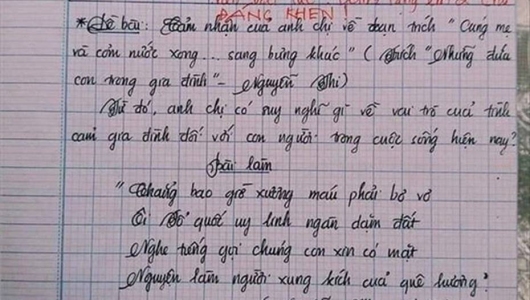 ĐÁNG KHEN!
* Đề bài: Cảm nhận của anh chị về đoạn trích "Cúng mẹ
và cơm nước xong... sang bưng khác" (Trích "Những đứa
con trong gia đình" - Nguyễn Thi)
Từ đó, anh chị có suy nghĩ gì về vai trò của tình
cảm gia đình đối với con người trong cuộc sống hiện nay?
Bài làm
"Chẳng bao giờ xương máu phải bơ vơ
Ôi Tổ quốc uy linh ngàn dặm đất
Nghe tiếng gọi chúng con xin có mặt
Nguyện làm người xung kích của quê hương"